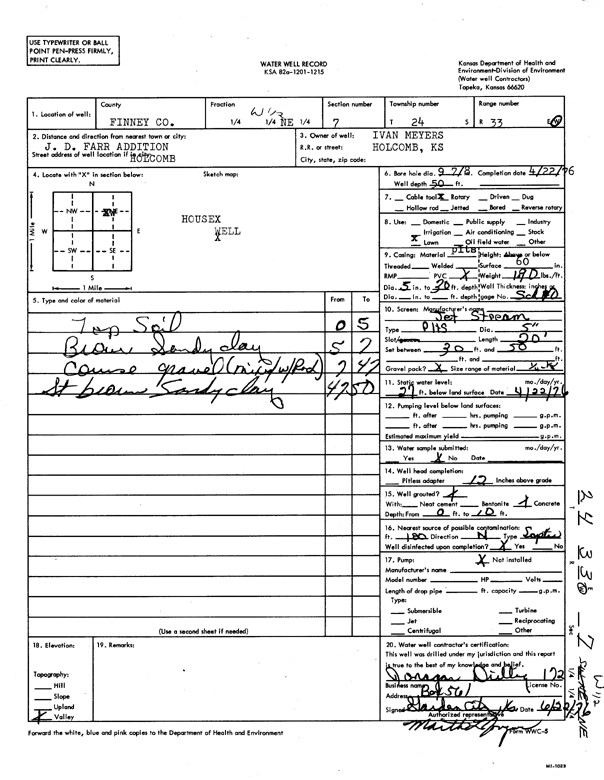 USE TYPEWRITER OR BALL
POINT PEN-PRESS FIRMLY,
PRINT CLEARLY.
WATER WELL RECORD
KSA 82a-1201-1215
Kansas Department of Health and
Environment-Division of Environment
(Water well Contractors)
Topeka, Kansas 66620
1. Location of well:
County
FINNEY CO.
Fraction
W 1/2
1/4 1/4 NE 1/4
Section number
7
Township number
T 24 S
Range number
R 33 E/W
2. Distance and direction from nearest town or city:
J. D. FARR ADDITION
Street address of well location if in city:
HOLCOMB
3. Owner of well: IVAN MEYERS
R.R. or street: HOLCOMB, KS
City, state, zip code:
4. Locate with "X" in section below:
Sketch map:
N
NW
W E
SW SE
S
1 Mile
1 Mile
HOUSEX
WELL
X
6. Bore hole dia. 9 7/8. Completion date 4/22/76
Well depth 50 ft.
7. Cable tool X Rotary Driven Dug
Hollow rod Jetted Bored Reverse rotary
8. Use: Domestic Public supply Industry
Irrigation Air conditioning Stock
X Lawn Oil field water Other
9. Casing: Material Height: Above or below
Threaded Welded Surface 60 in.
RMP PVC X Weight lbs./ft.
Dia. 5 in. to 30 ft. depth Wall Thickness: inches or
Dia. in. to ft. depth gage No. Sch 40
5. Type and color of material
From To
Top Soil 0 5
Brown Sandy clay 5 7
Course gravel 7 47
St brown Sandy clay 47 50
10. Screen: Manufacturer's name
Jet Stream
Type Dia. 5"
Slot/gauze Length 20'
Set between 30 ft. and 50 ft.
ft. and ft.
Gravel pack? X Size range of material
11. Static water level: mo./day/yr.
27 ft. below land surface Date 4/22/76
12. Pumping level below land surfaces:
ft. after hrs. pumping g.p.m.
ft. after hrs. pumping g.p.m.
Estimated maximum yield g.p.m.
13. Water sample submitted: mo./day/yr.
Yes X No Date
14. Well head completion:
Pitless adapter 12 Inches above grade
15. Well grouted? X
With: Neat cement Bentonite X Concrete
Depth: From 0 ft. to 10 ft.
16. Nearest source of possible contamination:
ft. 180 Direction N Type Septic
Well disinfected upon completion? X Yes No
17. Pump: X Not installed
Manufacturer's name
Model number HP Volts
Length of drop pipe ft. capacity g.p.m.
Type:
Submersible Turbine
Jet Reciprocating
Centrifugal Other
(Use a second sheet if needed)
18. Elevation:
Topography:
Hill
Slope
Upland
X Valley
19. Remarks:
20. Water well contractor's certification:
This well was drilled under my jurisdiction and this report
is true to the best of my knowledge and belief.
172
Business name License No.
Address Box 561
Signed Garden City, Ks Date 6/22/76
Authorized representative
Forward the white, blue and pink copies to the Department of Health and Environment
Form WWC-5
T 24
R 33 E/W
Sec 7
1/4 1/4 1/4
W 1/2
NE